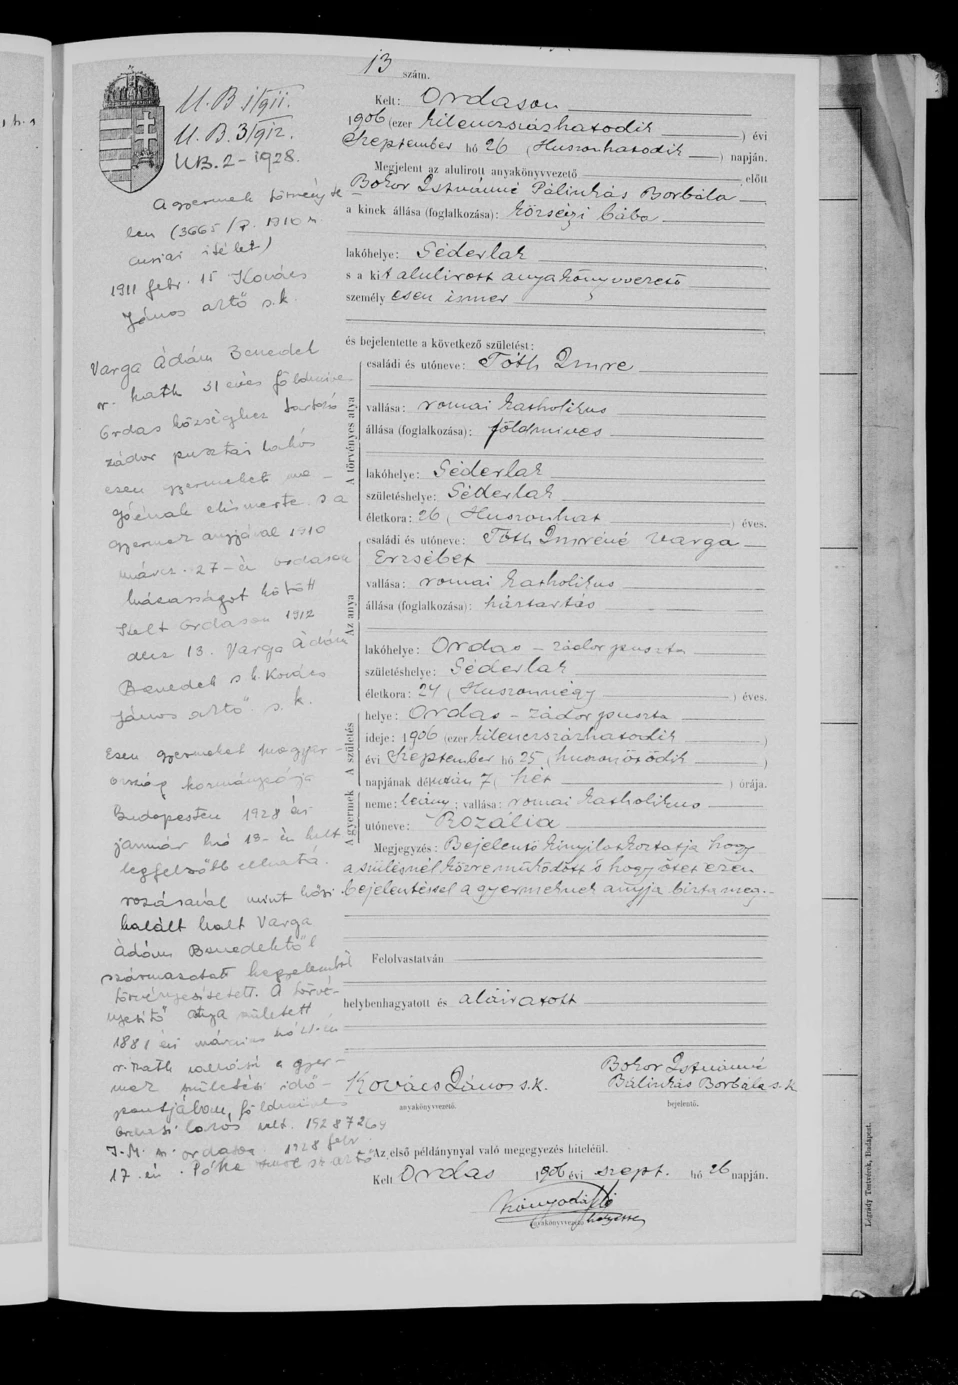 13 szám.
U. B 1/911.
U. B. 3/912.
UB. 2 - 1928.
Kelt: Ordason
1906 (ezer kilenczszázhatodik) évi
Szeptember hó 26 (Huszonhatodik) napján.
Megjelent az alulirott anyakönyvvezető előtt
Bokor Istvánné Pálinkás Borbála
a kinek állása (foglalkozása): községi bába
lakóhelye: Géderlak
s a kit alulirott anyakönyvvezető
személyesen ismer
és bejelentette a következő születést:
A törvényes atya
családi és utóneve: Tóth Imre
vallása: romai katholikus
állása (foglalkozása): földmives
lakóhelye: Géderlak
születéshelye: Géderlak
életkora: 26 (Huszonhat) éves.
Az anya
családi és utóneve: Tóth Imréné Varga
Erzsébet
vallása: romai katholikus
állása (foglalkozása): háztartás
lakóhelye: Ordas - zádor puszta
születéshelye: Géderlak
életkora: 24 (Huszonnégy) éves.
A születés
helye: Ordas - zádor puszta
ideje: 1906 (ezer kilenczszázhatodik)
évi Szeptember hó 25 (huszonötödik)
napjának délután 7 (hét) órája.
A gyermek
neme: leány; vallása: romai katholikus
utóneve: Rozália
Megjegyzés: Bejelentő kinyilatkoztatja hogy
a szülésnél közreműködött s hogy őtet ezen
bejelentéssel a gyermeknek anyja bizta meg.
Felolvastatván
helybenhagyatott és aláiratott
Kovács János s.k.
anyakönyvvezető.
Bokor Istvánné
Pálinkás Borbála s.k.
bejelentő.
Az első példánynyal való megegyezés hiteléül.
Kelt Ordas 1906 évi szept. hó 26 napján.
anyakönyvvezető helyettes
A gyermek törvényte
len (3665/P. 1910
curiai itélet)
1911 febr. 15 Kovács
János aktő s.k.
Varga Ádám Benedek
r. kath 31 éves földmive
Ordas községhez tartozó
zádor pusztai lakós
ezen gyermeket ma-
gáénak elismerte s a
gyermek anyjával 1910
márcz. 27-én ordason
házasságot kötött
Kelt Ordason 1912
decz 13. Varga Ádám
Benedek s.k. Kovács
János aktő s. k.
Ezen gyermeket Magyar-
ország kormányzója
Budapesten 1928 évi
január hó 13-án kelt
legfelsőbb elhatá-
rozásával mint hősi
halált halt Varga
Ádám Benedektől
származottat kegyelemből
törvényesitetett. A törvé-
nyesitő atya született
1881 évi március hó
r. kath vallású a gyer-
mek születési idő-
pontjában, földmives
ordasi lakós
I. M. r. ordason 1928 febr
17-én. Póka
Légrády Testvérek, Budapest.